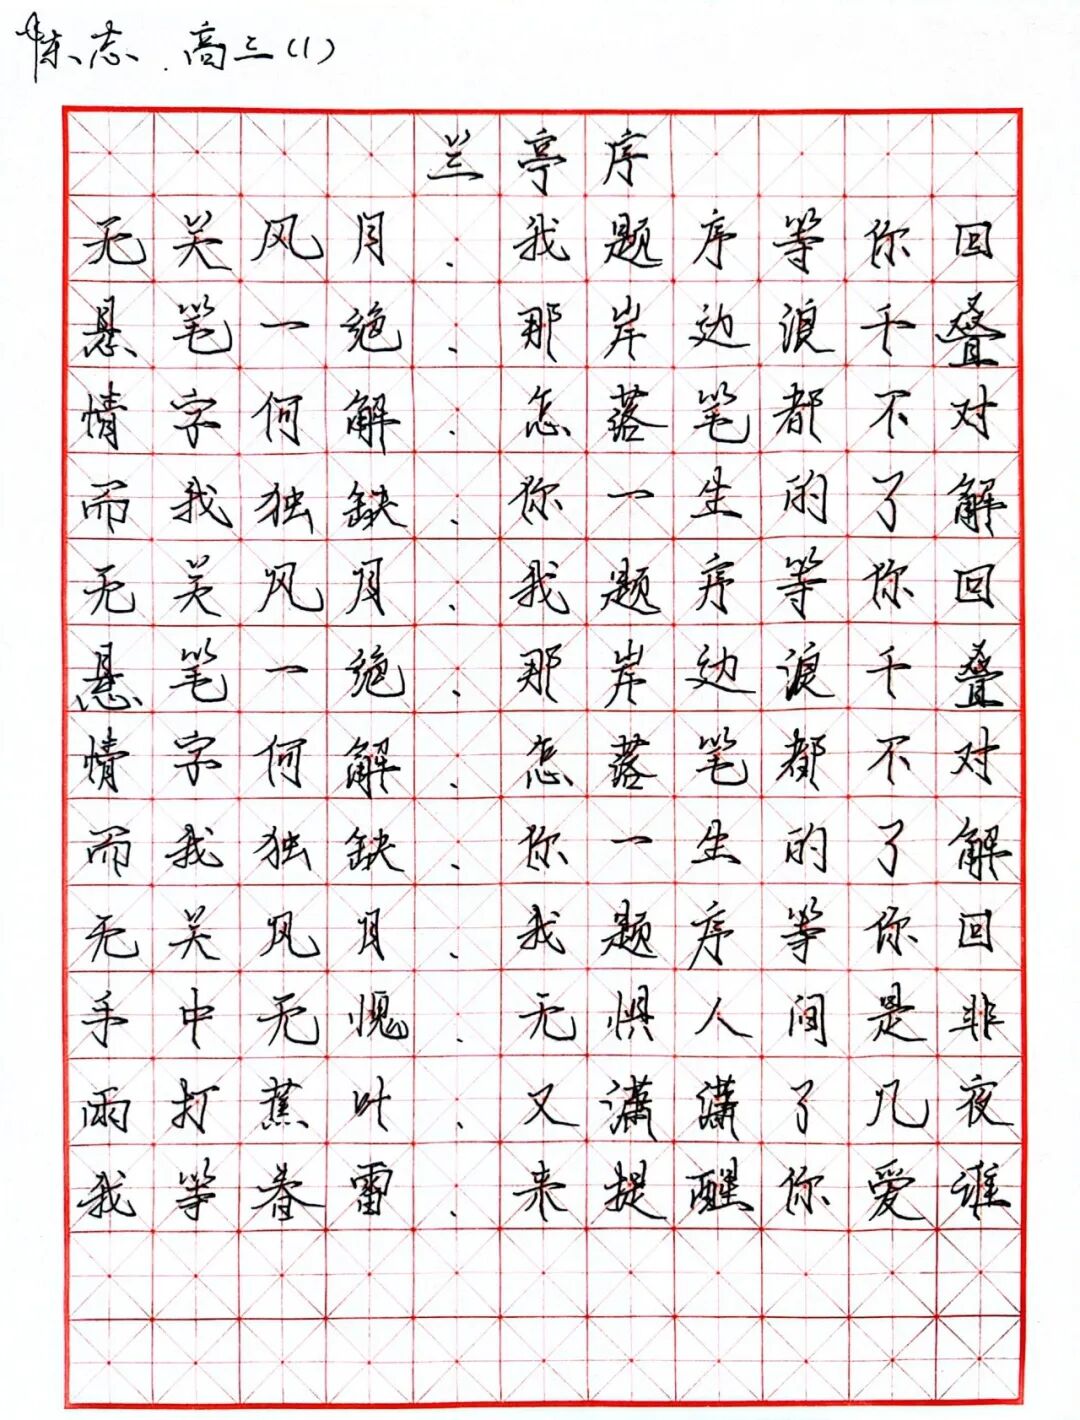 陈志.高三(1)
兰亭序
无关风月、我题序等你回
悬笔一绝、那岸边浪千叠
情字何解、怎落笔都不对
而我独缺、你一生的了解
无关风月、我题序等你回
悬笔一绝、那岸边浪千叠
情字何解、怎落笔都不对
而我独缺、你一生的了解
无关风月、我题序等你回
手中无愧、无惧人间是非
雨打蕉叶、又潇潇了几夜
我等春雷、来提醒你爱谁